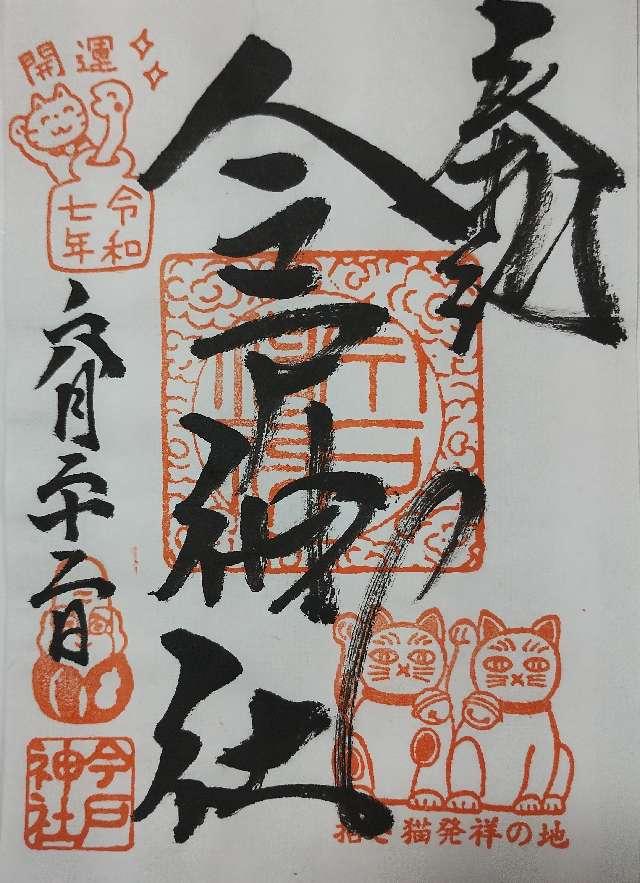 奉拝
今戸神社
開運
令和
七年
六月二十二日
今戸
神社
招き猫発祥の地